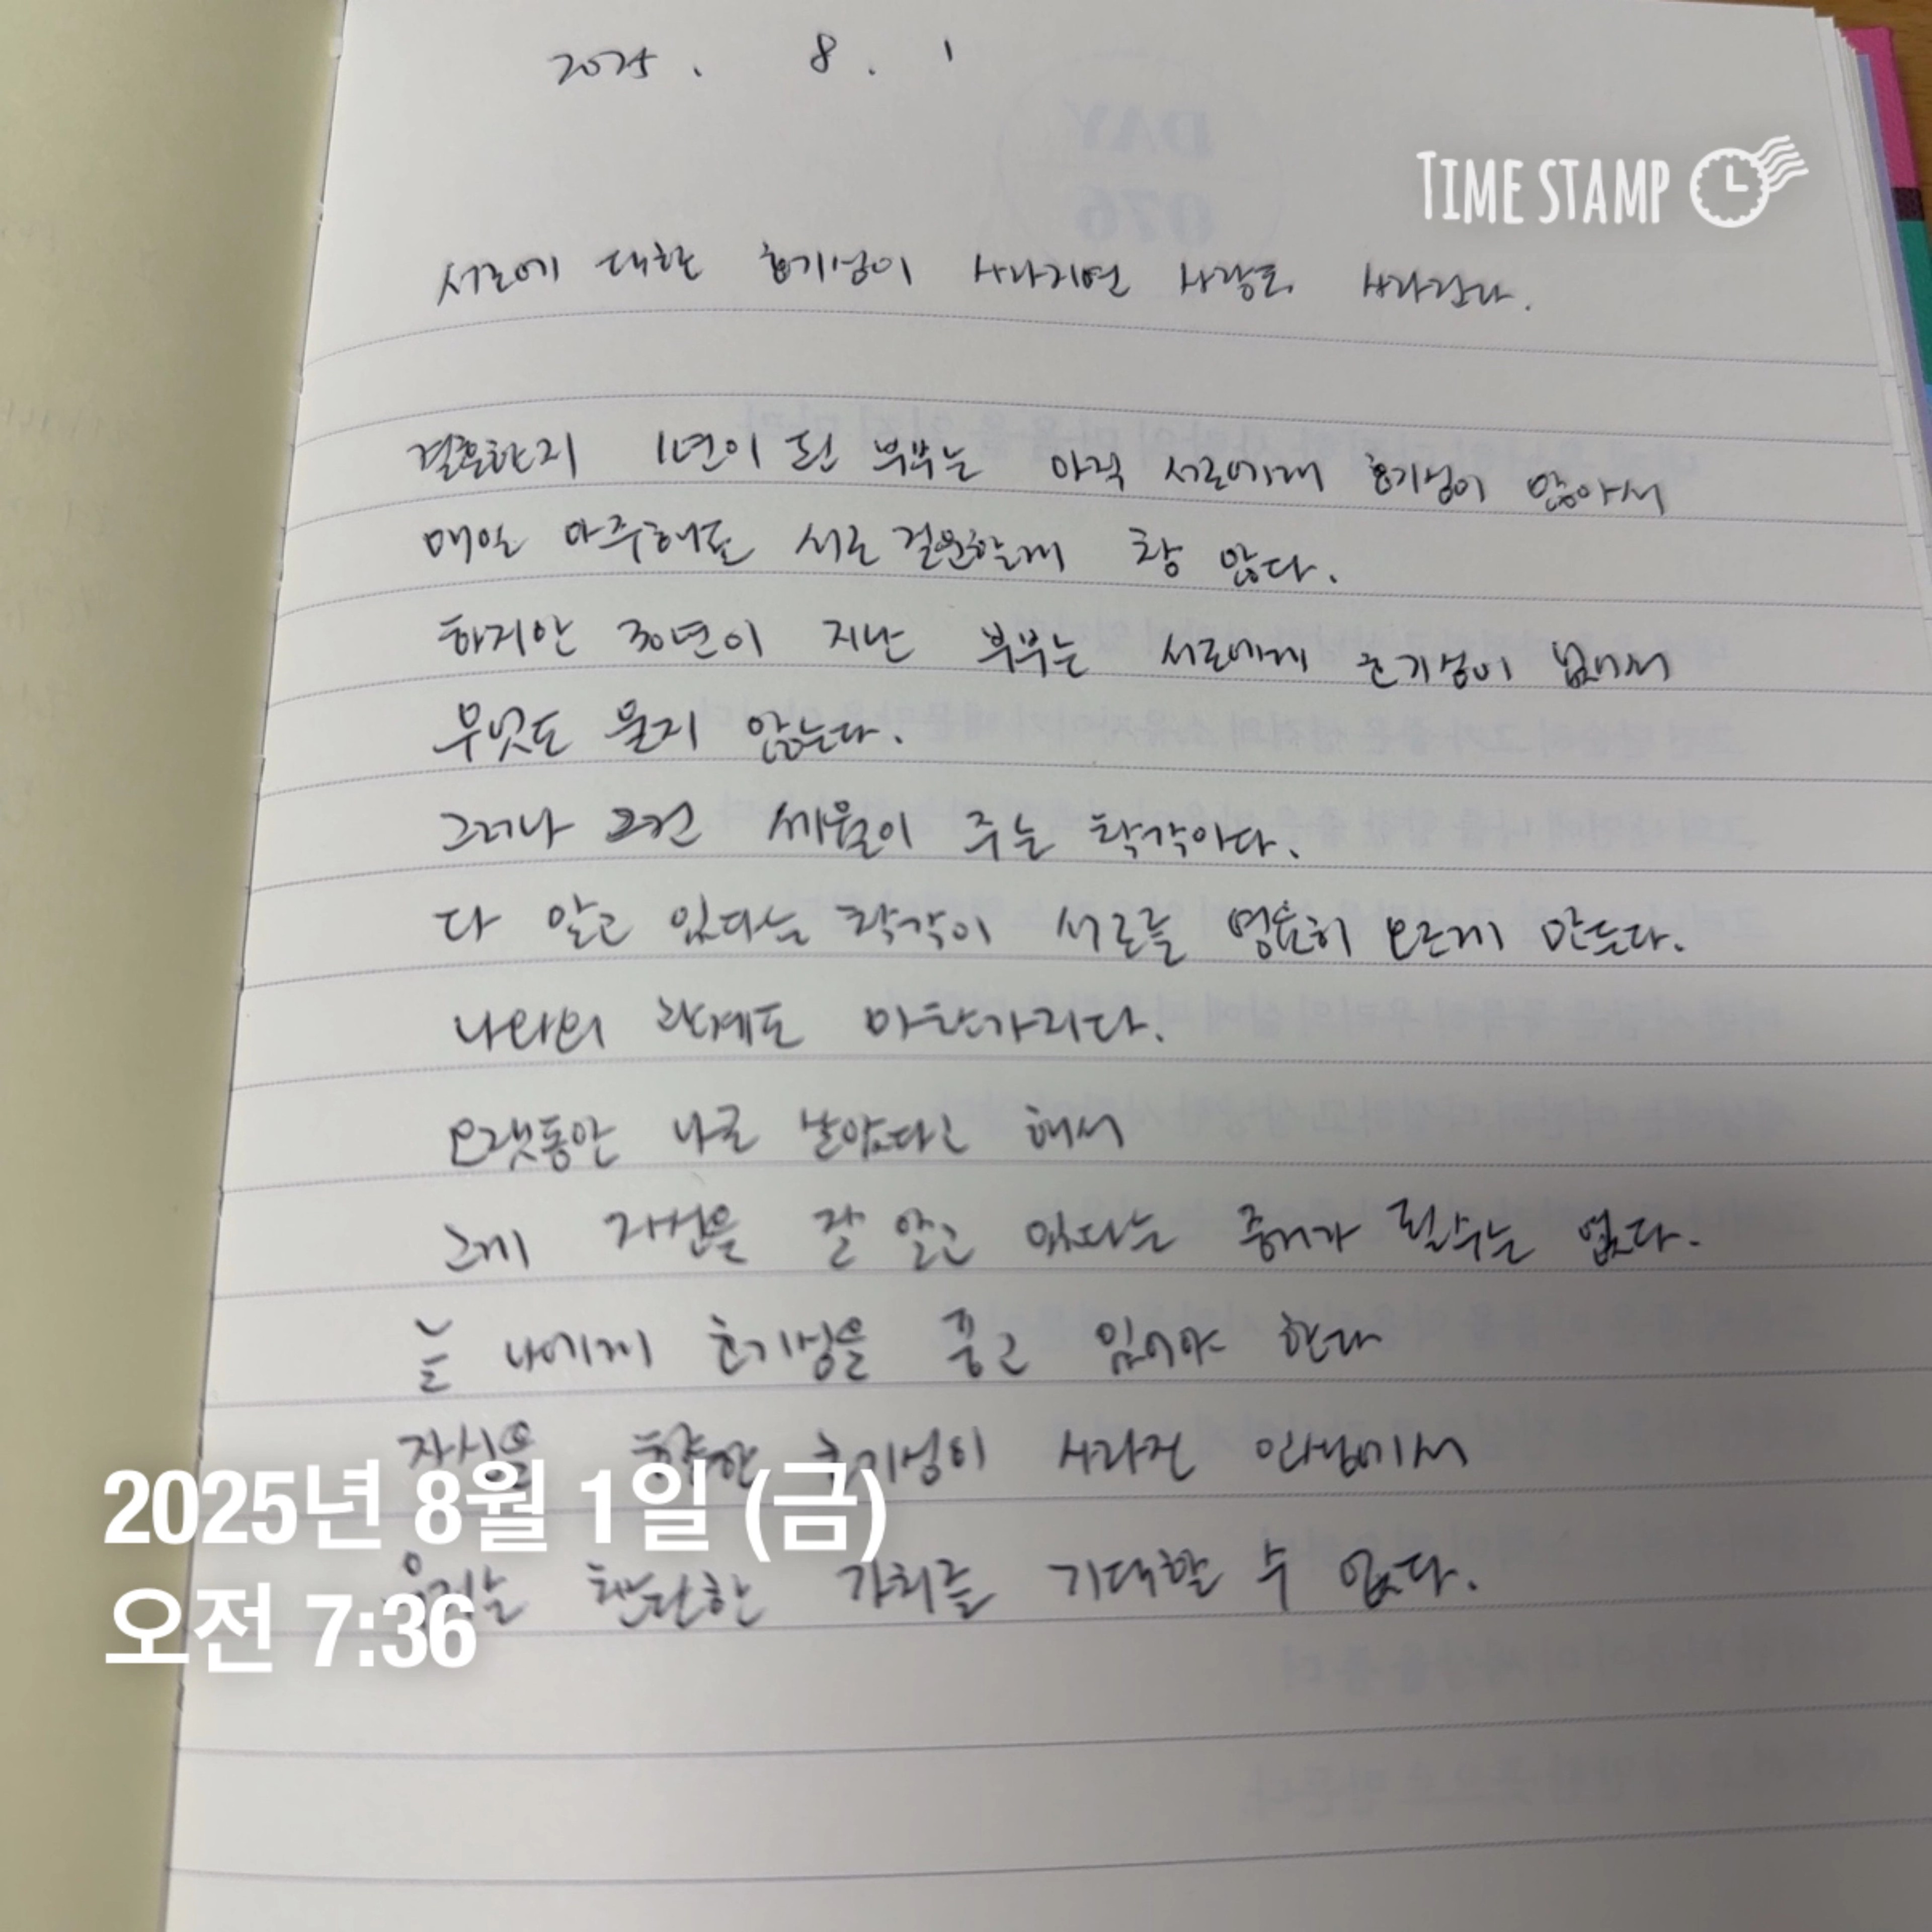 2025. 8. 1
TIME STAMP
서로에 대한 호기성이 사라지면 사랑도 사라진다.
결혼한지 1년이 된 부부는 아직 서로에게 호기성이 많아서
매일 마주해도 서로 질문할게 참 많다.
하지만 30년이 지난 부부는 서로에게 호기성이 없어서
무엇도 묻지 않는다.
그러나 그건 세월이 주는 착각이다.
다 알고 있다는 착각이 서로를 영원히 모르게 만든다.
나와의 관계도 마찬가지다.
오랫동안 나로 살았다고 해서
그게 자신을 잘 알고 있다는 증거가 될수는 없다.
늘 나에게 호기성을 품고 있어야 한다
자신을 향한 호기성이 사라진 인생에서
우리는 찬란한 가치를 기대할 수 없다.
2025년 8월 1일 (금)
오전 7:36